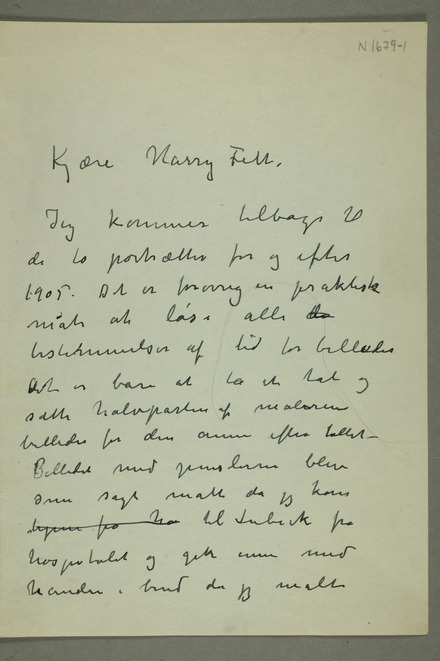 N 1679-1
Kjære Harry Fett.
Jeg kommer tilbage til
de to portrætter før og efter
1905. Det er forøvrig en praktisk
måte at løse alle da
bestemmelser af tid for billeder
Det er bare at ta et tal og
sætte halvparten af malerens
billeder før den annen efter tallet –
Billedet med penslerne blev
som sagt malt da jeg kom
hjem fra ha til Lubeck fra
hospitalet og gik ennu med
hånden i bind da jeg malte